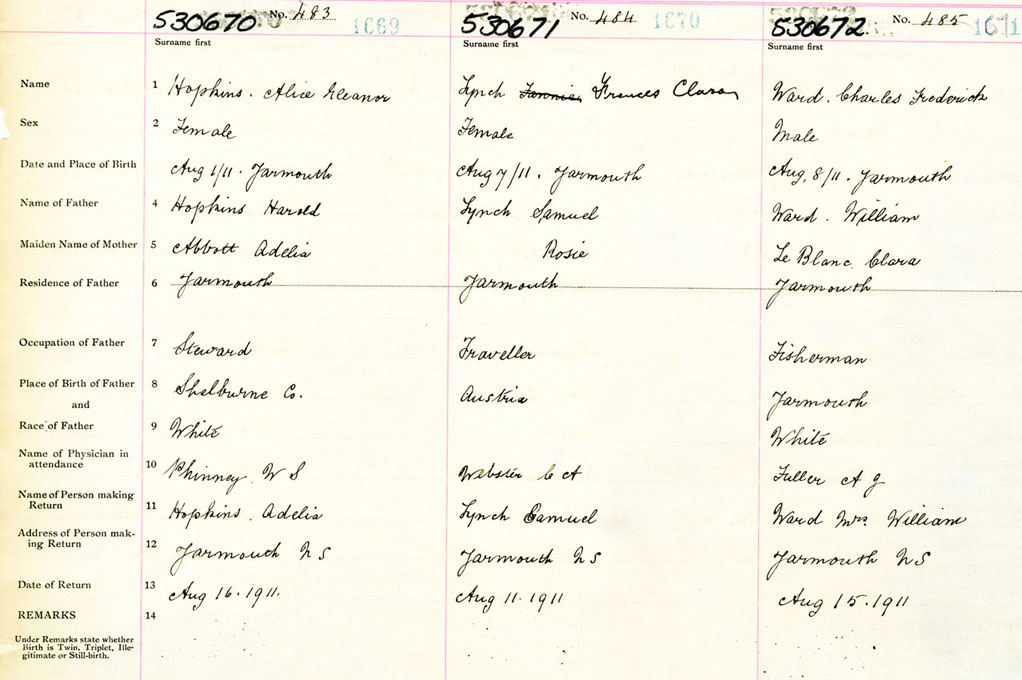 530670 No. 483 1669 530671 No. 484 1670 530672 No. 485 1671
Surname first Surname first Surname first
Name 1 Hopkins. Alice Eleanor Lynch Fannie Frances Clara Ward. Charles Frederick
Sex 2 Female Female Male
Date and Place of Birth 3 Aug 1/11. Yarmouth Aug 7/11. Yarmouth Aug. 8/11. Yarmouth
Name of Father 4 Hopkins Harold Lynch Samuel Ward. William
Maiden Name of Mother 5 Abbott Adelia Rosie Le Blanc Clara
Residence of Father 6 Yarmouth Yarmouth Yarmouth
Occupation of Father 7 Steward Traveller Fisherman
Place of Birth of Father 8 Shelburne Co. Austria Yarmouth
and
Race of Father 9 White White
Name of Physician in
attendance 10 Phinney W S Webster C A Fuller A J
Name of Person making
Return 11 Hopkins. Adelia Lynch Samuel Ward Mrs. William
Address of Person mak-
ing Return 12 Yarmouth N S Yarmouth N S Yarmouth N S
Date of Return 13 Aug 16. 1911. Aug 11. 1911 Aug 15. 1911
REMARKS 14
Under Remarks state whether
Birth is Twin, Triplet, Ille-
gitimate or Still-birth.